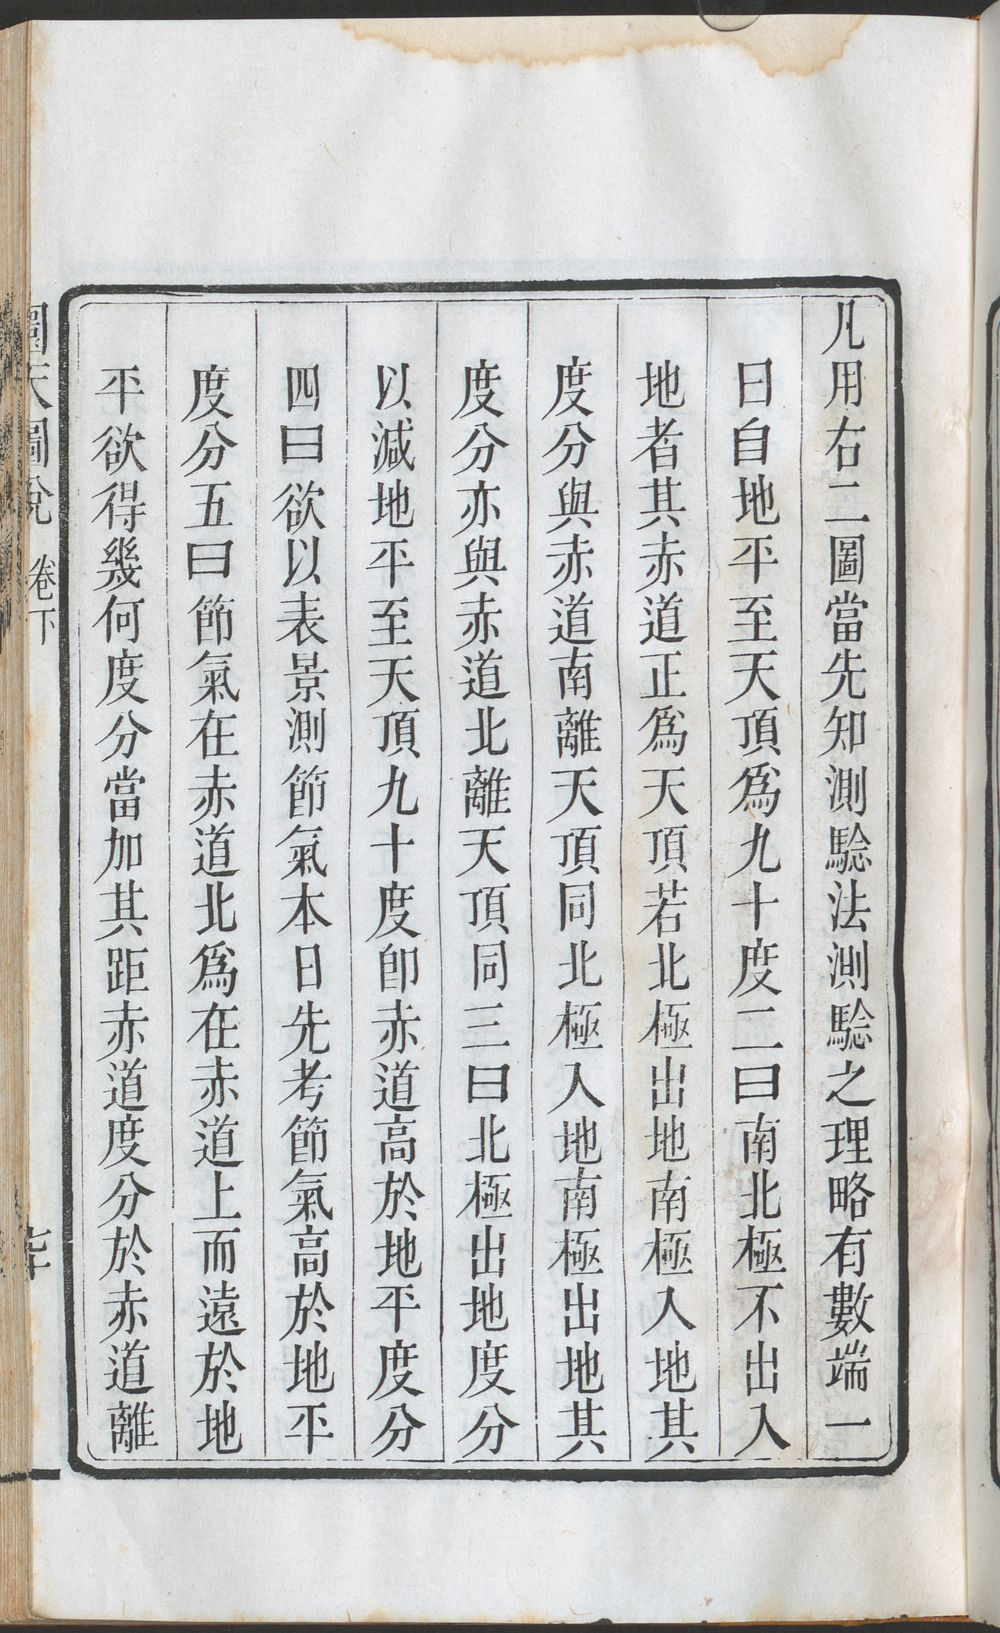 凡用右二圖當先知測騐法測騐之理略有數端一
曰自地平至天頂爲九十度二曰南北極不出入
地者其赤道正爲天頂若北極出地南極入地其
度分與赤道南離天頂同北極入地南極出地其
度分亦與赤道北離天頂同三曰北極出地度分
以減地平至天頂九十度卽赤道高於地平度分
四曰欲以表景測節氣本日先考節氣高於地平
度分五曰節氣在赤道北爲在赤道上而遠於地
平欲得幾何度分當加其距赤道度分於赤道離
天圖說 卷下